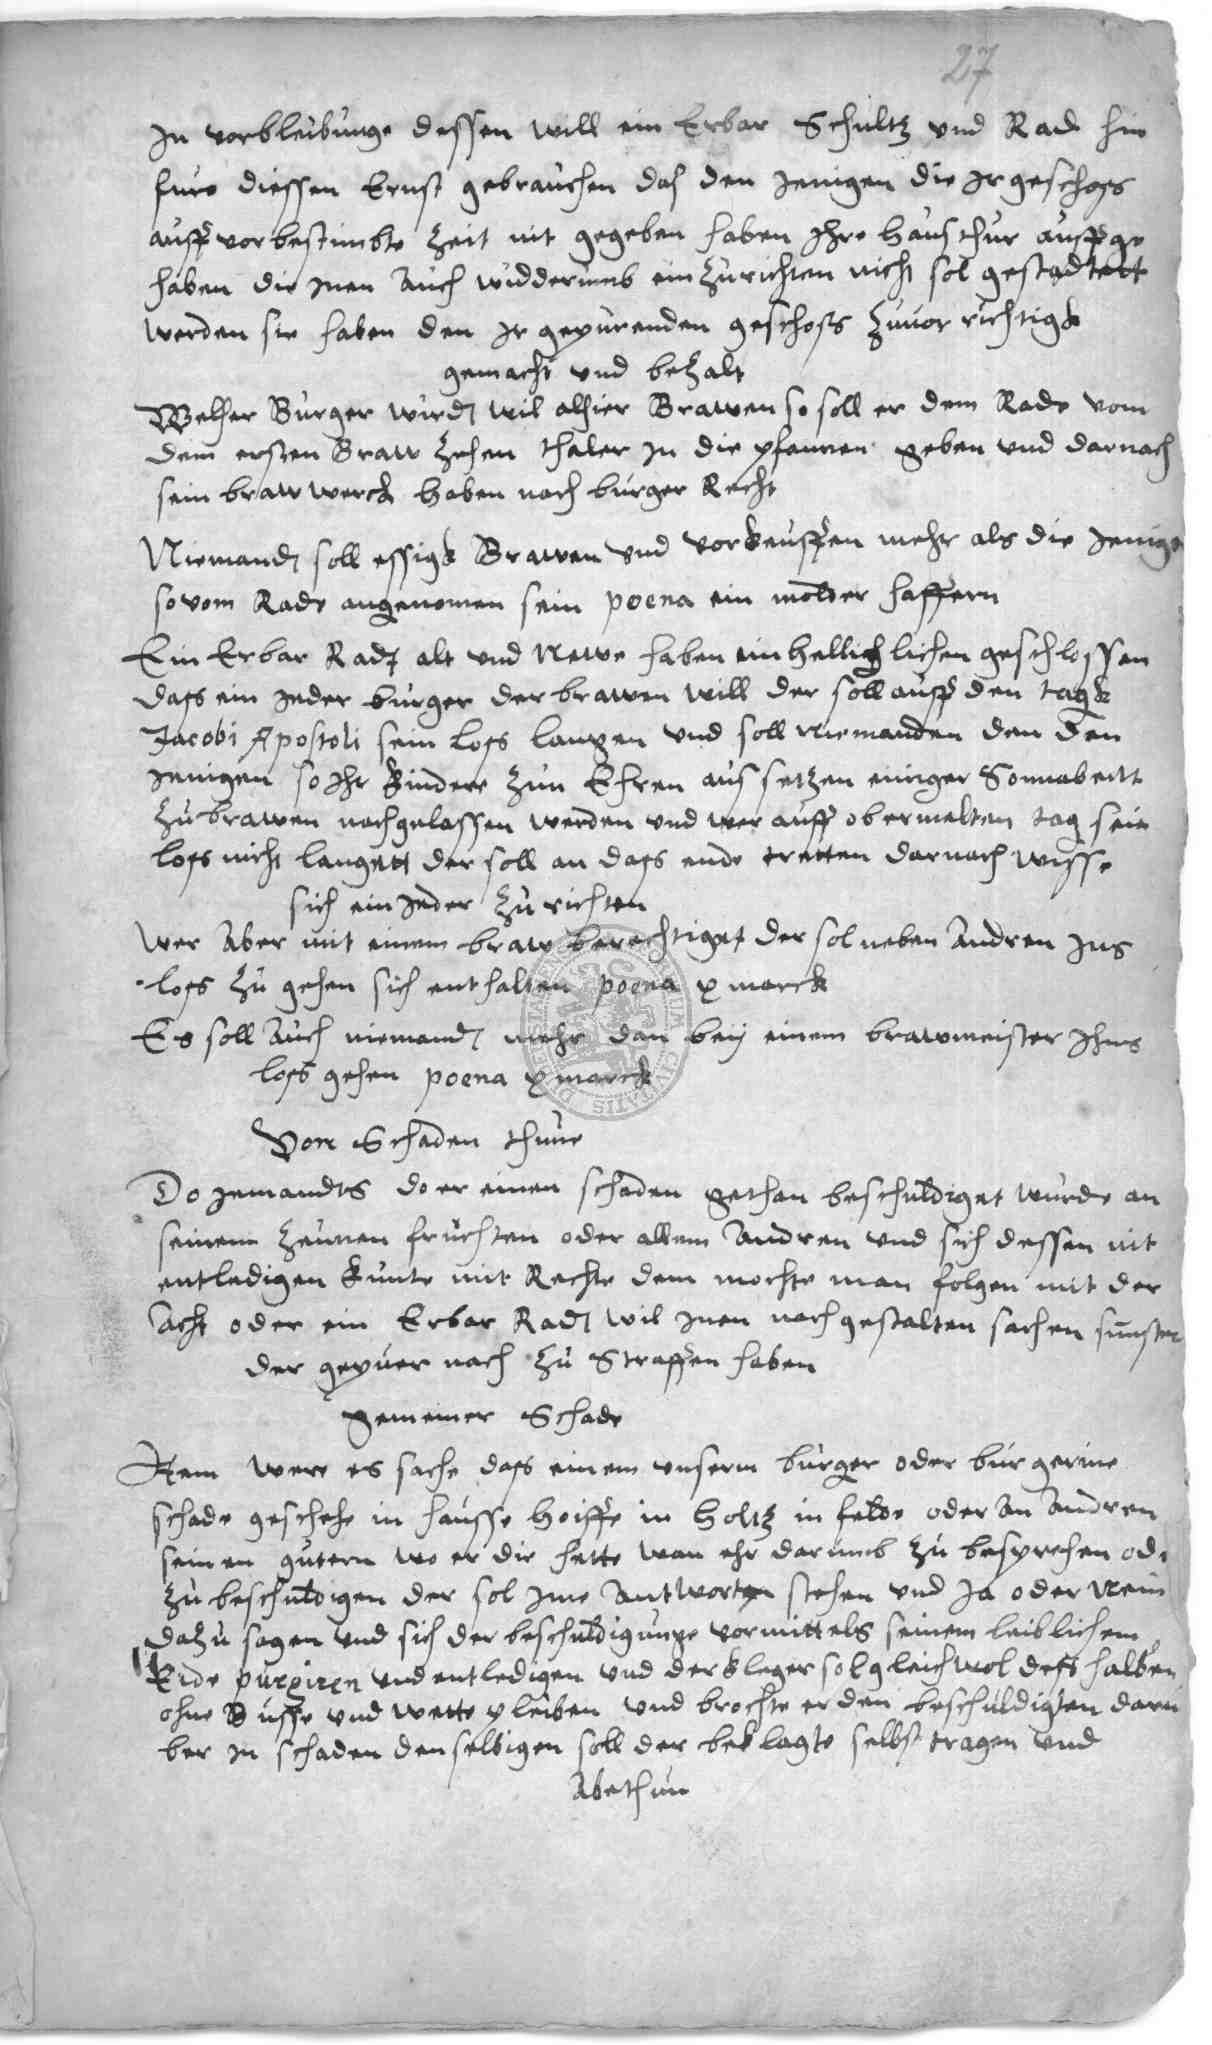 27
In vorbleibunge dessen will ein Erbar Schultz vnd Rad hin
furo diessen Ernst gebrauchen das den Jenigen die Ir geschoss
auff vorbestimbte Zeit nit gegeben haben Ihre Hausthur auffge
haben die Inen Auch widderumb ein Zurichten nicht sol gestadtett
werden sie haben den Ir gepurenden geschoss Zuuor richtigk
gemacht vnd bezalt
Welcher Burger wirdt wil alhier Brawen so soll er dem Rade vom
dem ersten Braw Zehen thaler In die pfannen geben vnd darnach
sein brawwerck haben nach burger Recht
Niemandt soll essigk Brawen vnd vorkeuffen mehr als die Jenigen
so vom Rade angenomen sein poena ein molder haffern
Ein Erbar Radt alt vnd Newe haben einhellichlichen geschlossen
dass ein Jeder burger der brawen will der soll auff den tagk
Jacobi Apostoli sein loss langen vnd soll niemanden den den
Jenigen so Ihr kinder zun Ehren aussetzen einiger Sonnabentt
Zubrawen nachgelassen werden vnd wer auff obermelten tag sein
loss nicht langett der soll an dass ende tretten darnach wisse
sich ein Jeder Zurichten
Wer Aber mit einem braw berechtiget der sol neben Andren Ins
loss Zu gehen sich enthalten poena x marck
Es soll Auch niemandt mehr dan beij einem brawmeister Ihns
loss gehen poena x marck
Von Schaden thune
Do Jemandts do er einen schaden gethan beschuldiget wurde an
seinem Zeunen fruchten oder allem Andren vnd sich dessen nit
entledigen kunte mit Rechte dem mochte man folgen mit der
Acht oder ein Erbar Radt wil Inen nach gestalten sachen sunsten
der gepuer nach Zu Straffen haben
Gemeiner Schade
Item were es sache dass einem vnserm burger oder burgerine
schade geschehe in hausse Hoiffe in Holtz in felde oder An Andren
seinen gutern wo er die hette wan ehr darumb Zu besprechen oder
Zu beschuldigen der sol Ime Antworten stehen vnd Ja oder Nein
dazu sagen vnd sich der beschuldigunge vormittels seinem leiblichem
Eide purgiren vnd entledigen vnd der kleger sol gleichwol dess halben
ohne Busse vnd wette pleiben vnd brochte er den beschuldigten daru
ber In schaden denselbigen soll der beklagte selbst tragen vnd
Abethun